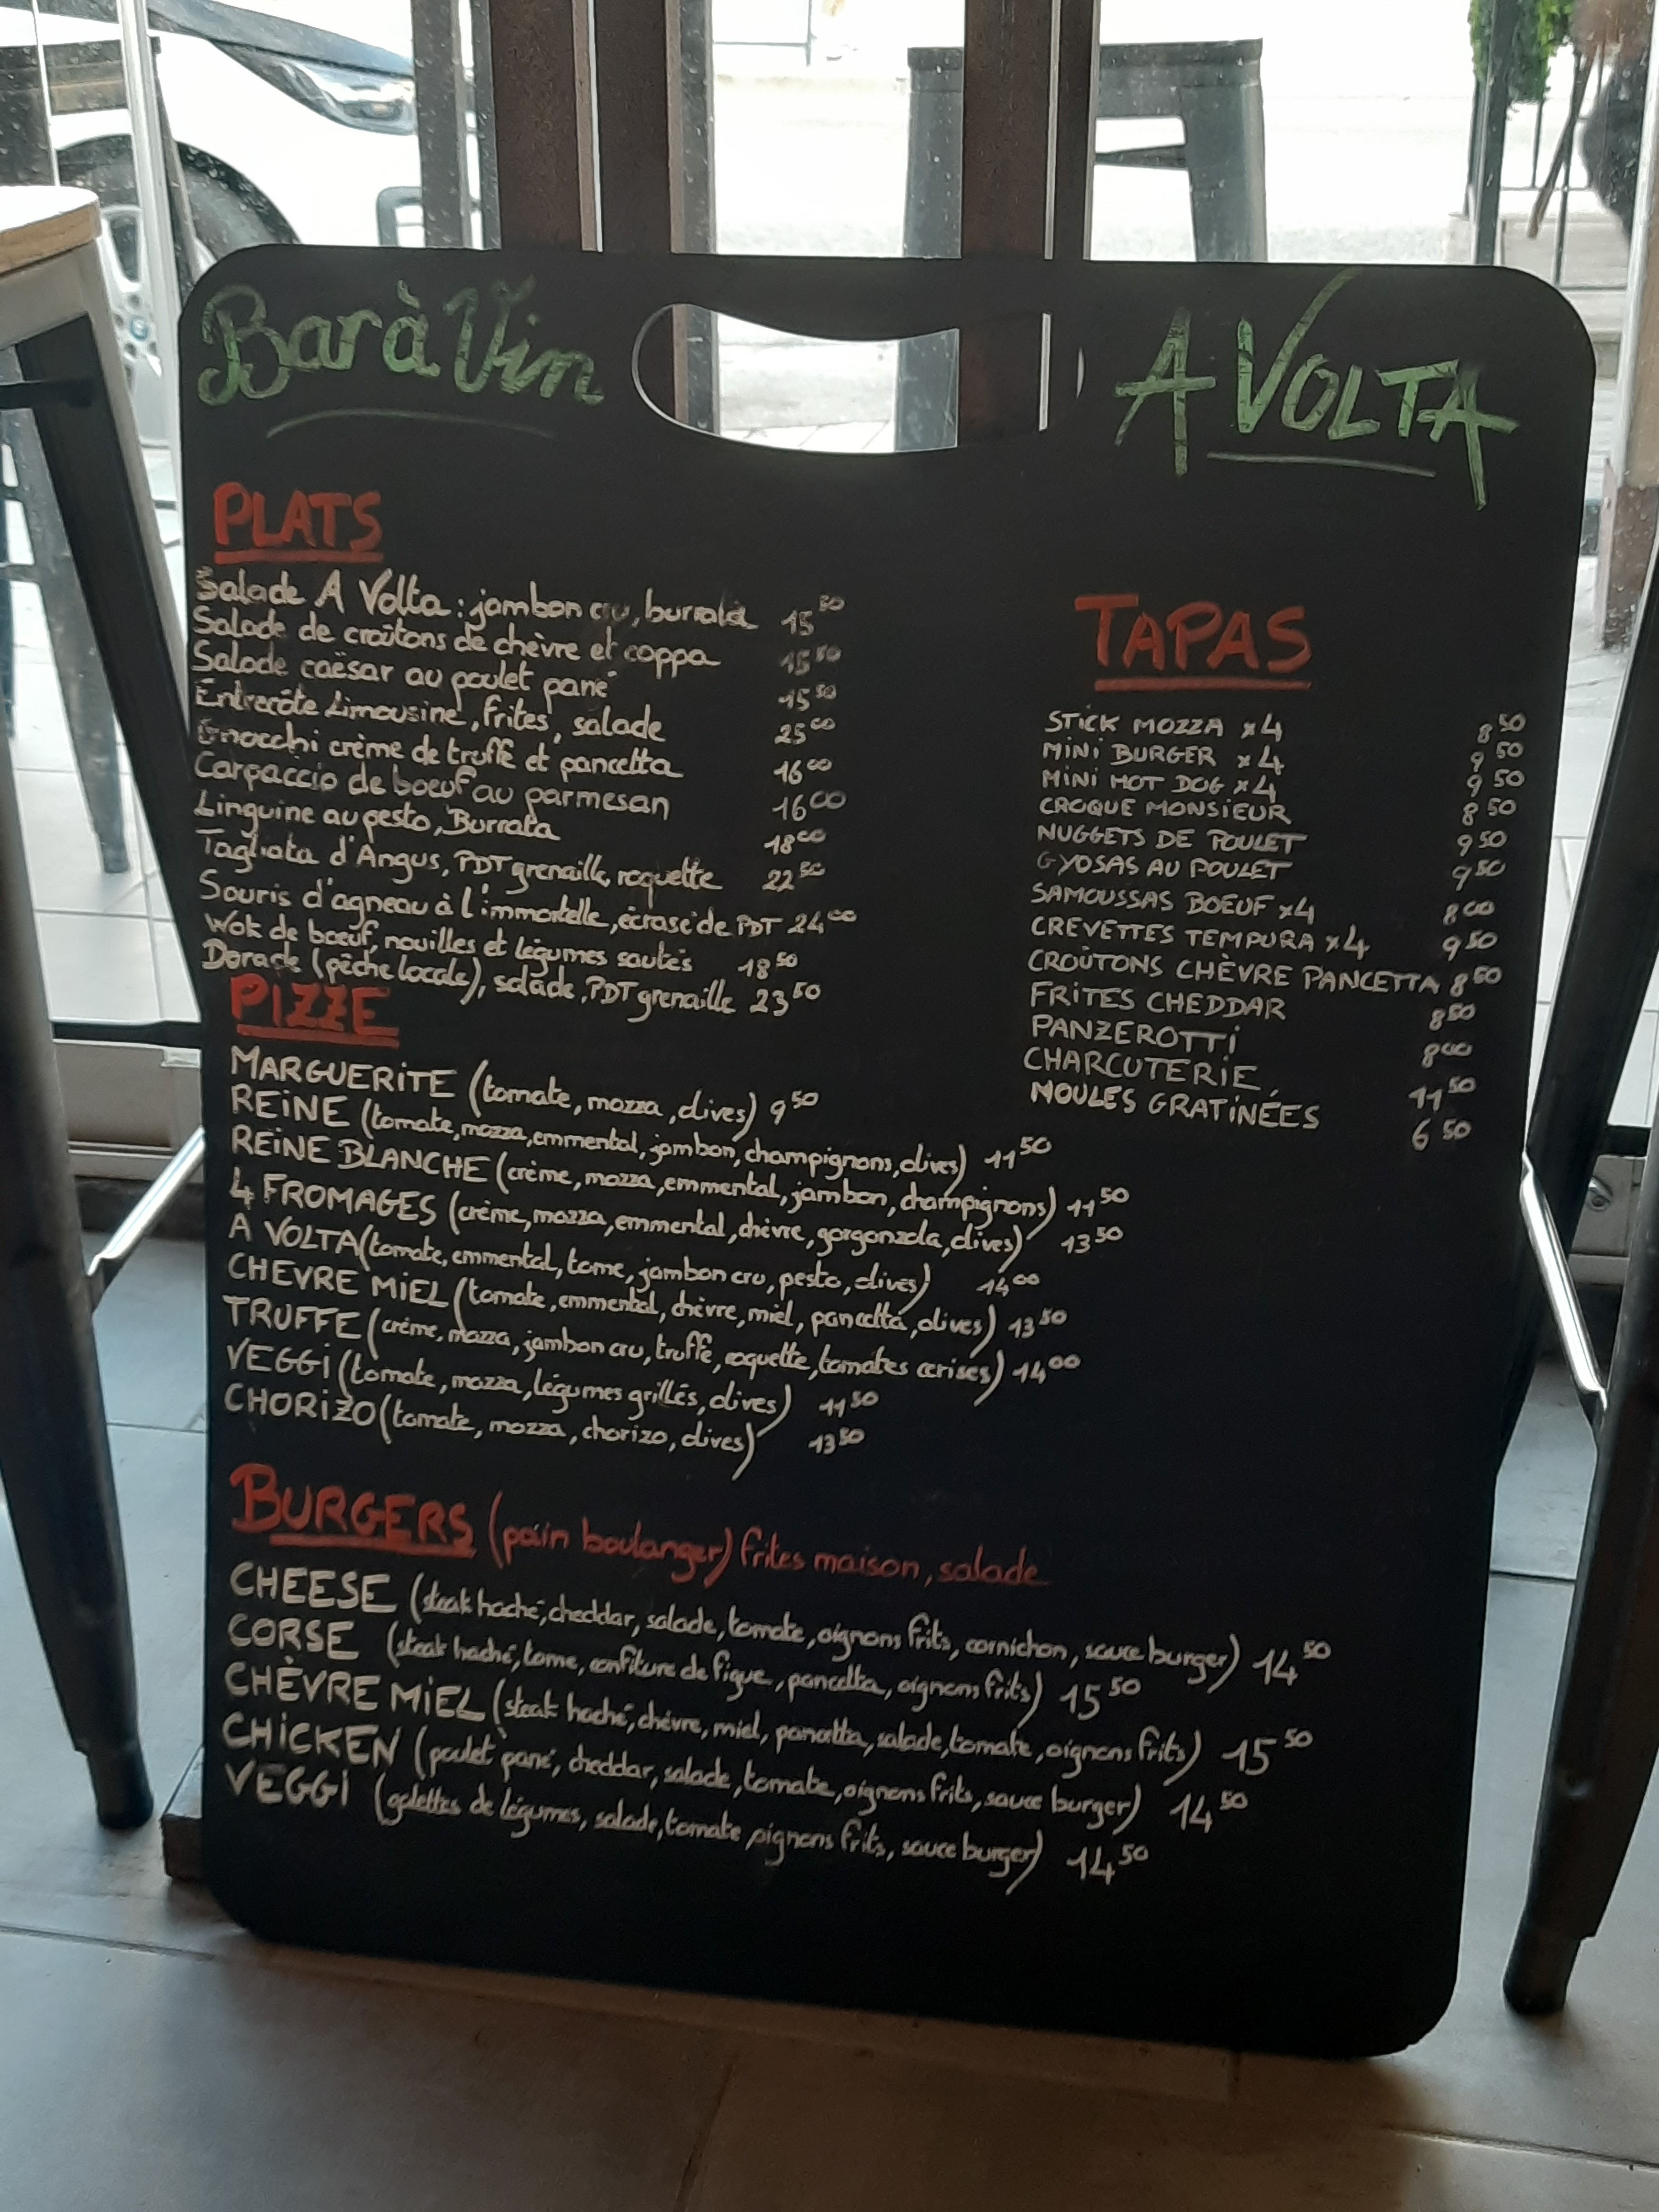 Bar à Vin
A VOLTA
PLATS
Salade A Volta : jambon cru, burrata 15 50
Salade de croûtons de chèvre et coppa 15 50
Salade caësar au poulet pané 15 50
Entrecôte Limousine, frites, salade 25 00
Gnocchi crème de truffe et pancetta 16 00
Carpaccio de boeuf au parmesan 16 00
Linguine au pesto, Burrata 18 00
Tagliata d'Angus, PDT grenaille, roquette 22 50
Souris d'agneau à l'immortelle, écrasé de PDT 24 00
Wok de boeuf, nouilles et légumes sautés 18 50
Dorade (pêche locale), salade, PDT grenaille 23 50
PIZZE
MARGUERITE (tomate, mozza, olives) 9 50
REINE (tomate, mozza, emmental, jambon, champignons, olives) 11 50
REINE BLANCHE (crème, mozza, emmental, jambon, champignons) 11 50
4 FROMAGES (crème, mozza, emmental, chèvre, gorgonzola, olives) 13 50
A VOLTA (tomate, emmental, tome, jambon cru, pesto, olives) 14 00
CHEVRE MIEL (tomate, emmental, chèvre, miel, pancetta, olives) 13 50
TRUFFE (crème, mozza, jambon cru, truffe, roquette, tomates cerises) 14 00
VEGGI (tomate, mozza, légumes grillés, olives) 11 50
CHORIZO (tomate, mozza, chorizo, olives) 13 50
BURGERS (pain boulanger) frites maison, salade
CHEESE (steak haché, cheddar, salade, tomate, oignons frits, cornichon, sauce burger) 14 50
CORSE (steak haché, tome, confiture de figue, pancetta, oignons frits) 15 50
CHÈVRE MIEL (steak haché, chèvre, miel, pancetta, salade, tomate, oignons frits) 15 50
CHICKEN (poulet pané, cheddar, salade, tomate, oignons frits, sauce burger) 14 50
VEGGI (galettes de légumes, salade, tomate, oignons frits, sauce burger) 14 50
TAPAS
STICK MOZZA x4 8 50
MINI BURGER x4 9 50
MINI HOT DOG x4 9 50
CROQUE MONSIEUR 8 50
NUGGETS DE POULET 9 50
GYOSAS AU POULET 9 50
SAMOUSSAS BOEUF x4 8 00
CREVETTES TEMPURA x4 9 50
CROÛTONS CHÈVRE PANCETTA 8 50
FRITES CHEDDAR 8 50
PANZEROTTI 8 00
CHARCUTERIE 11 50
MOULES GRATINÉES 6 50